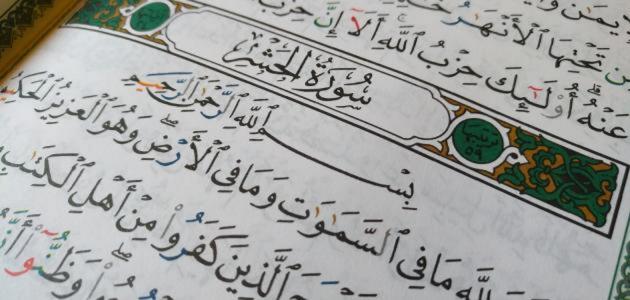 ٱلْإِيمَٰنَ
تَحْتِهَا ٱلْأَنْهَٰرُ
عَنْهُ أُو۟لَٰٓئِكَ حِزْبُ ٱللَّهِ أَلَآ إِنَّ حِزْبَ
سُورَةُ الحَشْرِ
ترتيبها ٥٩
بِسْمِ ٱللَّهِ ٱلرَّحْمَٰنِ ٱلرَّحِيمِ
لِلَّهِ مَا فِى ٱلسَّمَٰوَٰتِ وَمَا فِى ٱلْأَرْضِ وَهُوَ ٱلْعَزِيزُ ٱلْحَكِيمُ
ٱلَّذِينَ كَفَرُوا۟ مِنْ أَهْلِ ٱلْكِتَٰبِ
وَظَنُّوٓا۟